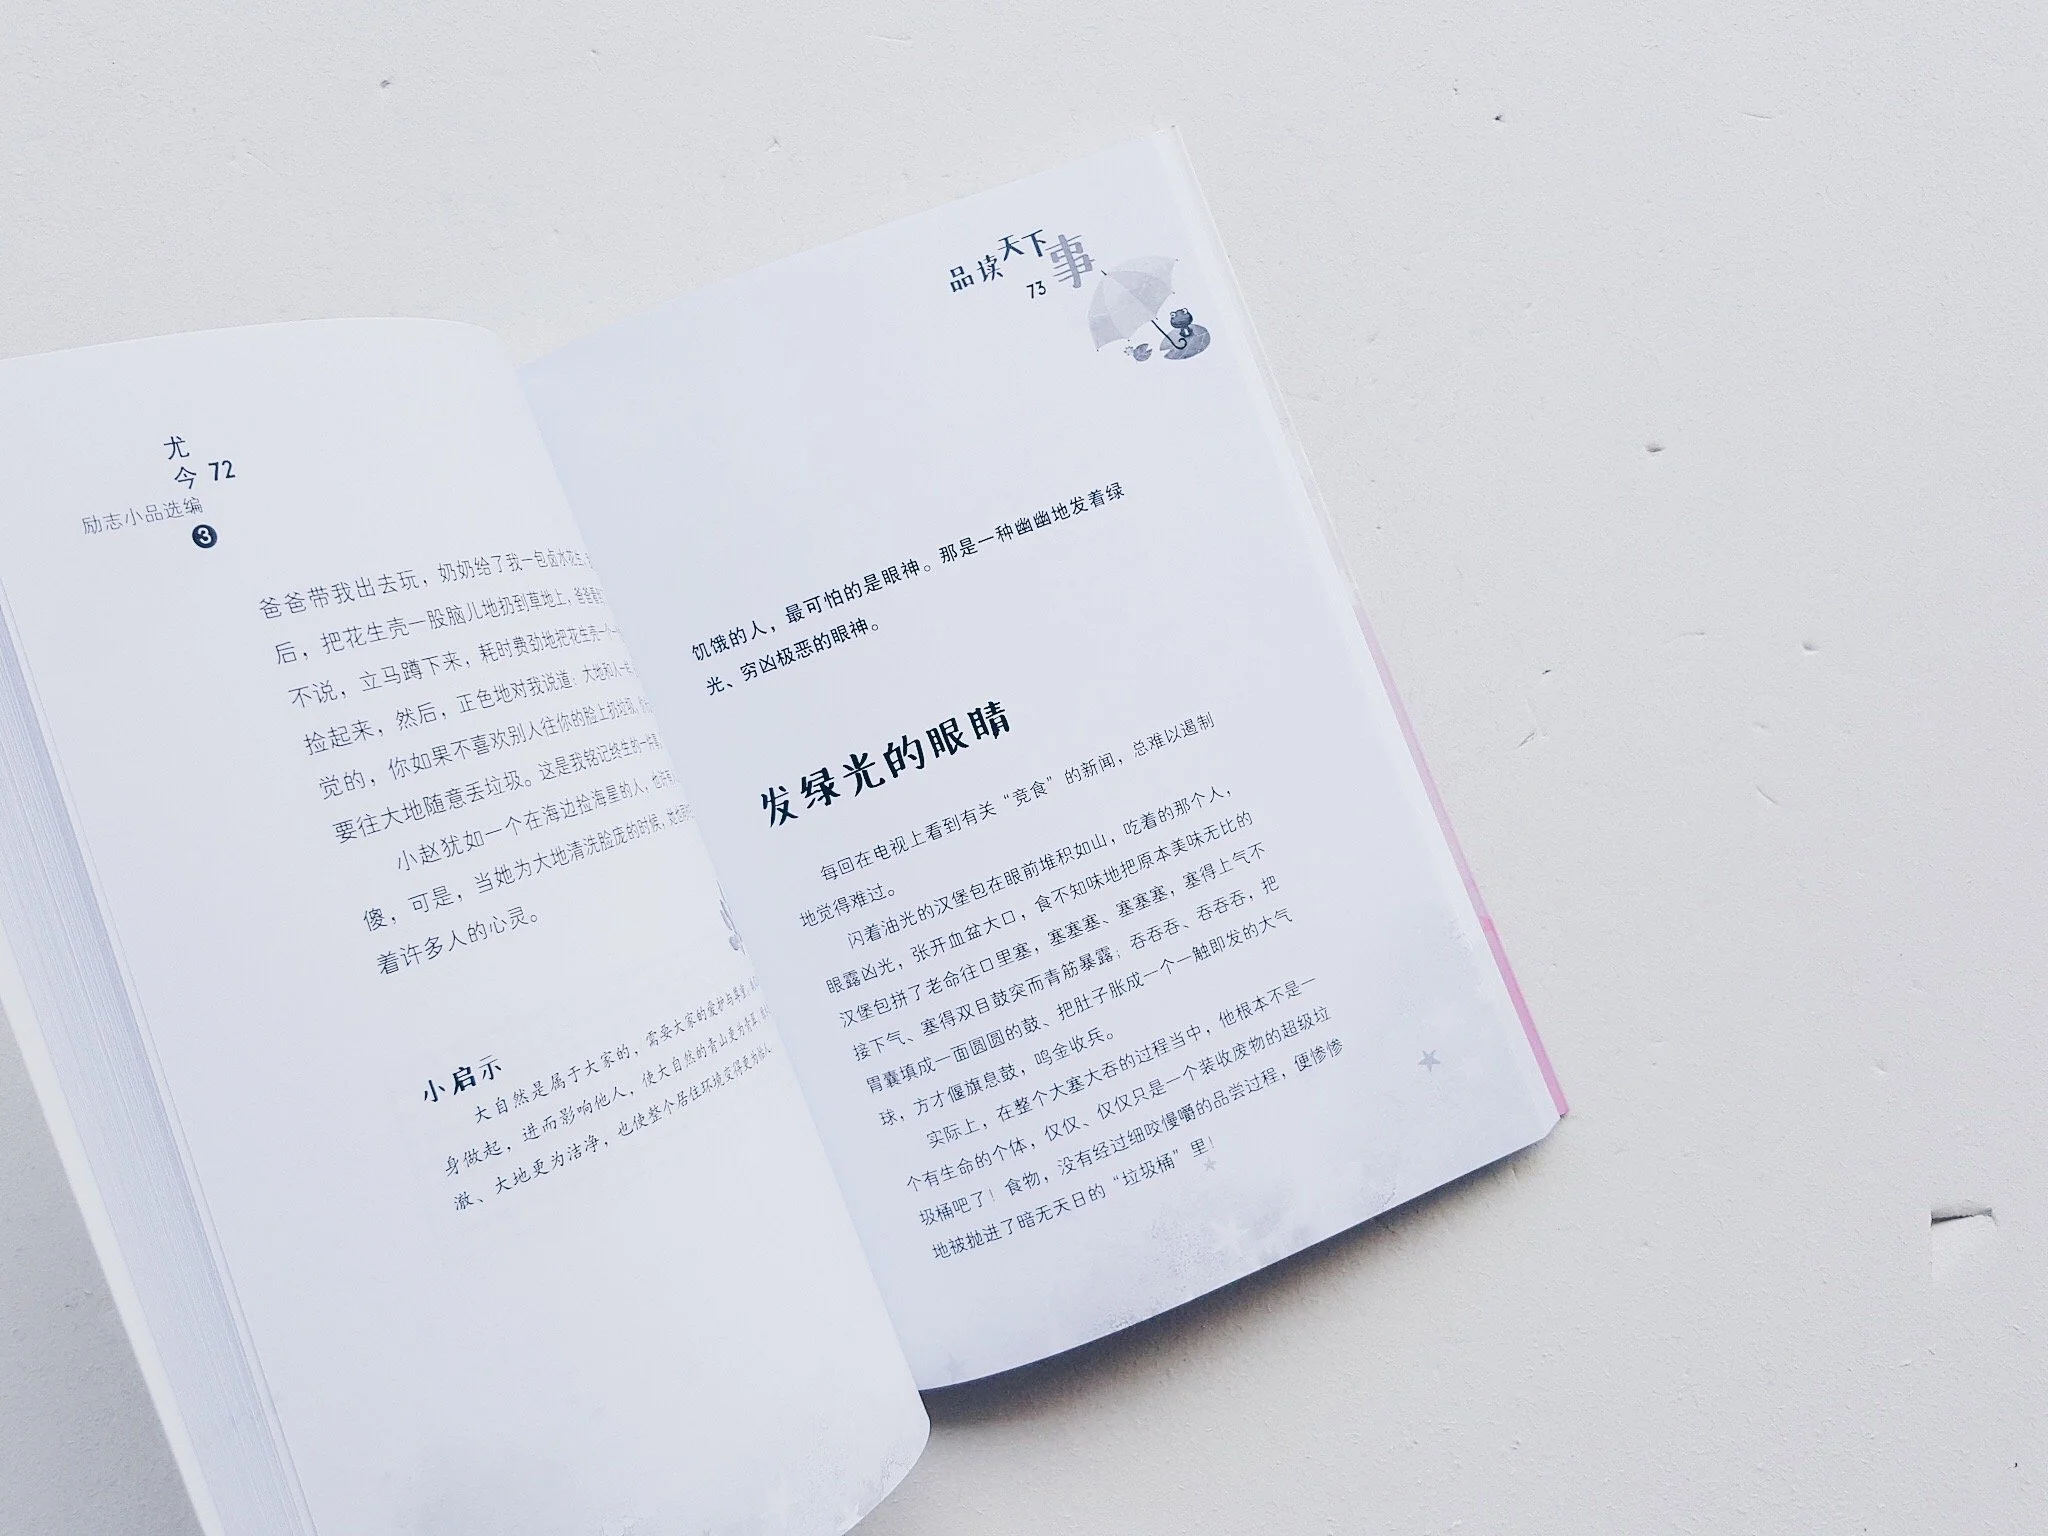 尤
今 72
励志小品选编
3
爸爸带我出去玩，奶奶给了我一包卤水花生，
后，把花生壳一股脑儿地扔到草地上，爸爸
不说，立马蹲下来，耗时费劲地把花生壳一个一
捡起来，然后，正色地对我说道：大地和人一样，
觉的，你如果不喜欢别人往你的脸上扔垃圾，
要往大地随意丢垃圾。这是我铭记终生的一件事
小赵犹如一个在海边捡海星的人，也许有
傻，可是，当她为大地清洗脸庞的时候，她也同时
着许多人的心灵。
小启示
大自然是属于大家的，需要大家的爱护与尊重，
身做起，进而影响他人，使大自然的青山更为青翠、
澈、大地更为洁净，也使整个居住环境变得更为怡人。
品读天下事
73
饥饿的人，最可怕的是眼神。那是一种幽幽地发着绿
光、穷凶极恶的眼神。
发绿光的眼睛
每回在电视上看到有关“竞食”的新闻，总难以遏制
地觉得难过。
闪着油光的汉堡包在眼前堆积如山，吃着的那个人，
眼露凶光，张开血盆大口，食不知味地把原本美味无比的
汉堡包拼了老命往口里塞，塞塞塞、塞塞塞，塞得上气不
接下气、塞得双目鼓突而青筋暴露；吞吞吞、吞吞吞，把
胃囊填成一面圆圆的鼓、把肚子胀成一个一触即发的大气
球，方才偃旗息鼓，鸣金收兵。
实际上，在整个大塞大吞的过程当中，他根本不是一
个有生命的个体，仅仅、仅仅只是一个装收废物的超级垃
圾桶吧了！食物，没有经过细咬慢嚼的品尝过程，便惨惨
地被抛进了暗无天日的“垃圾桶”里！